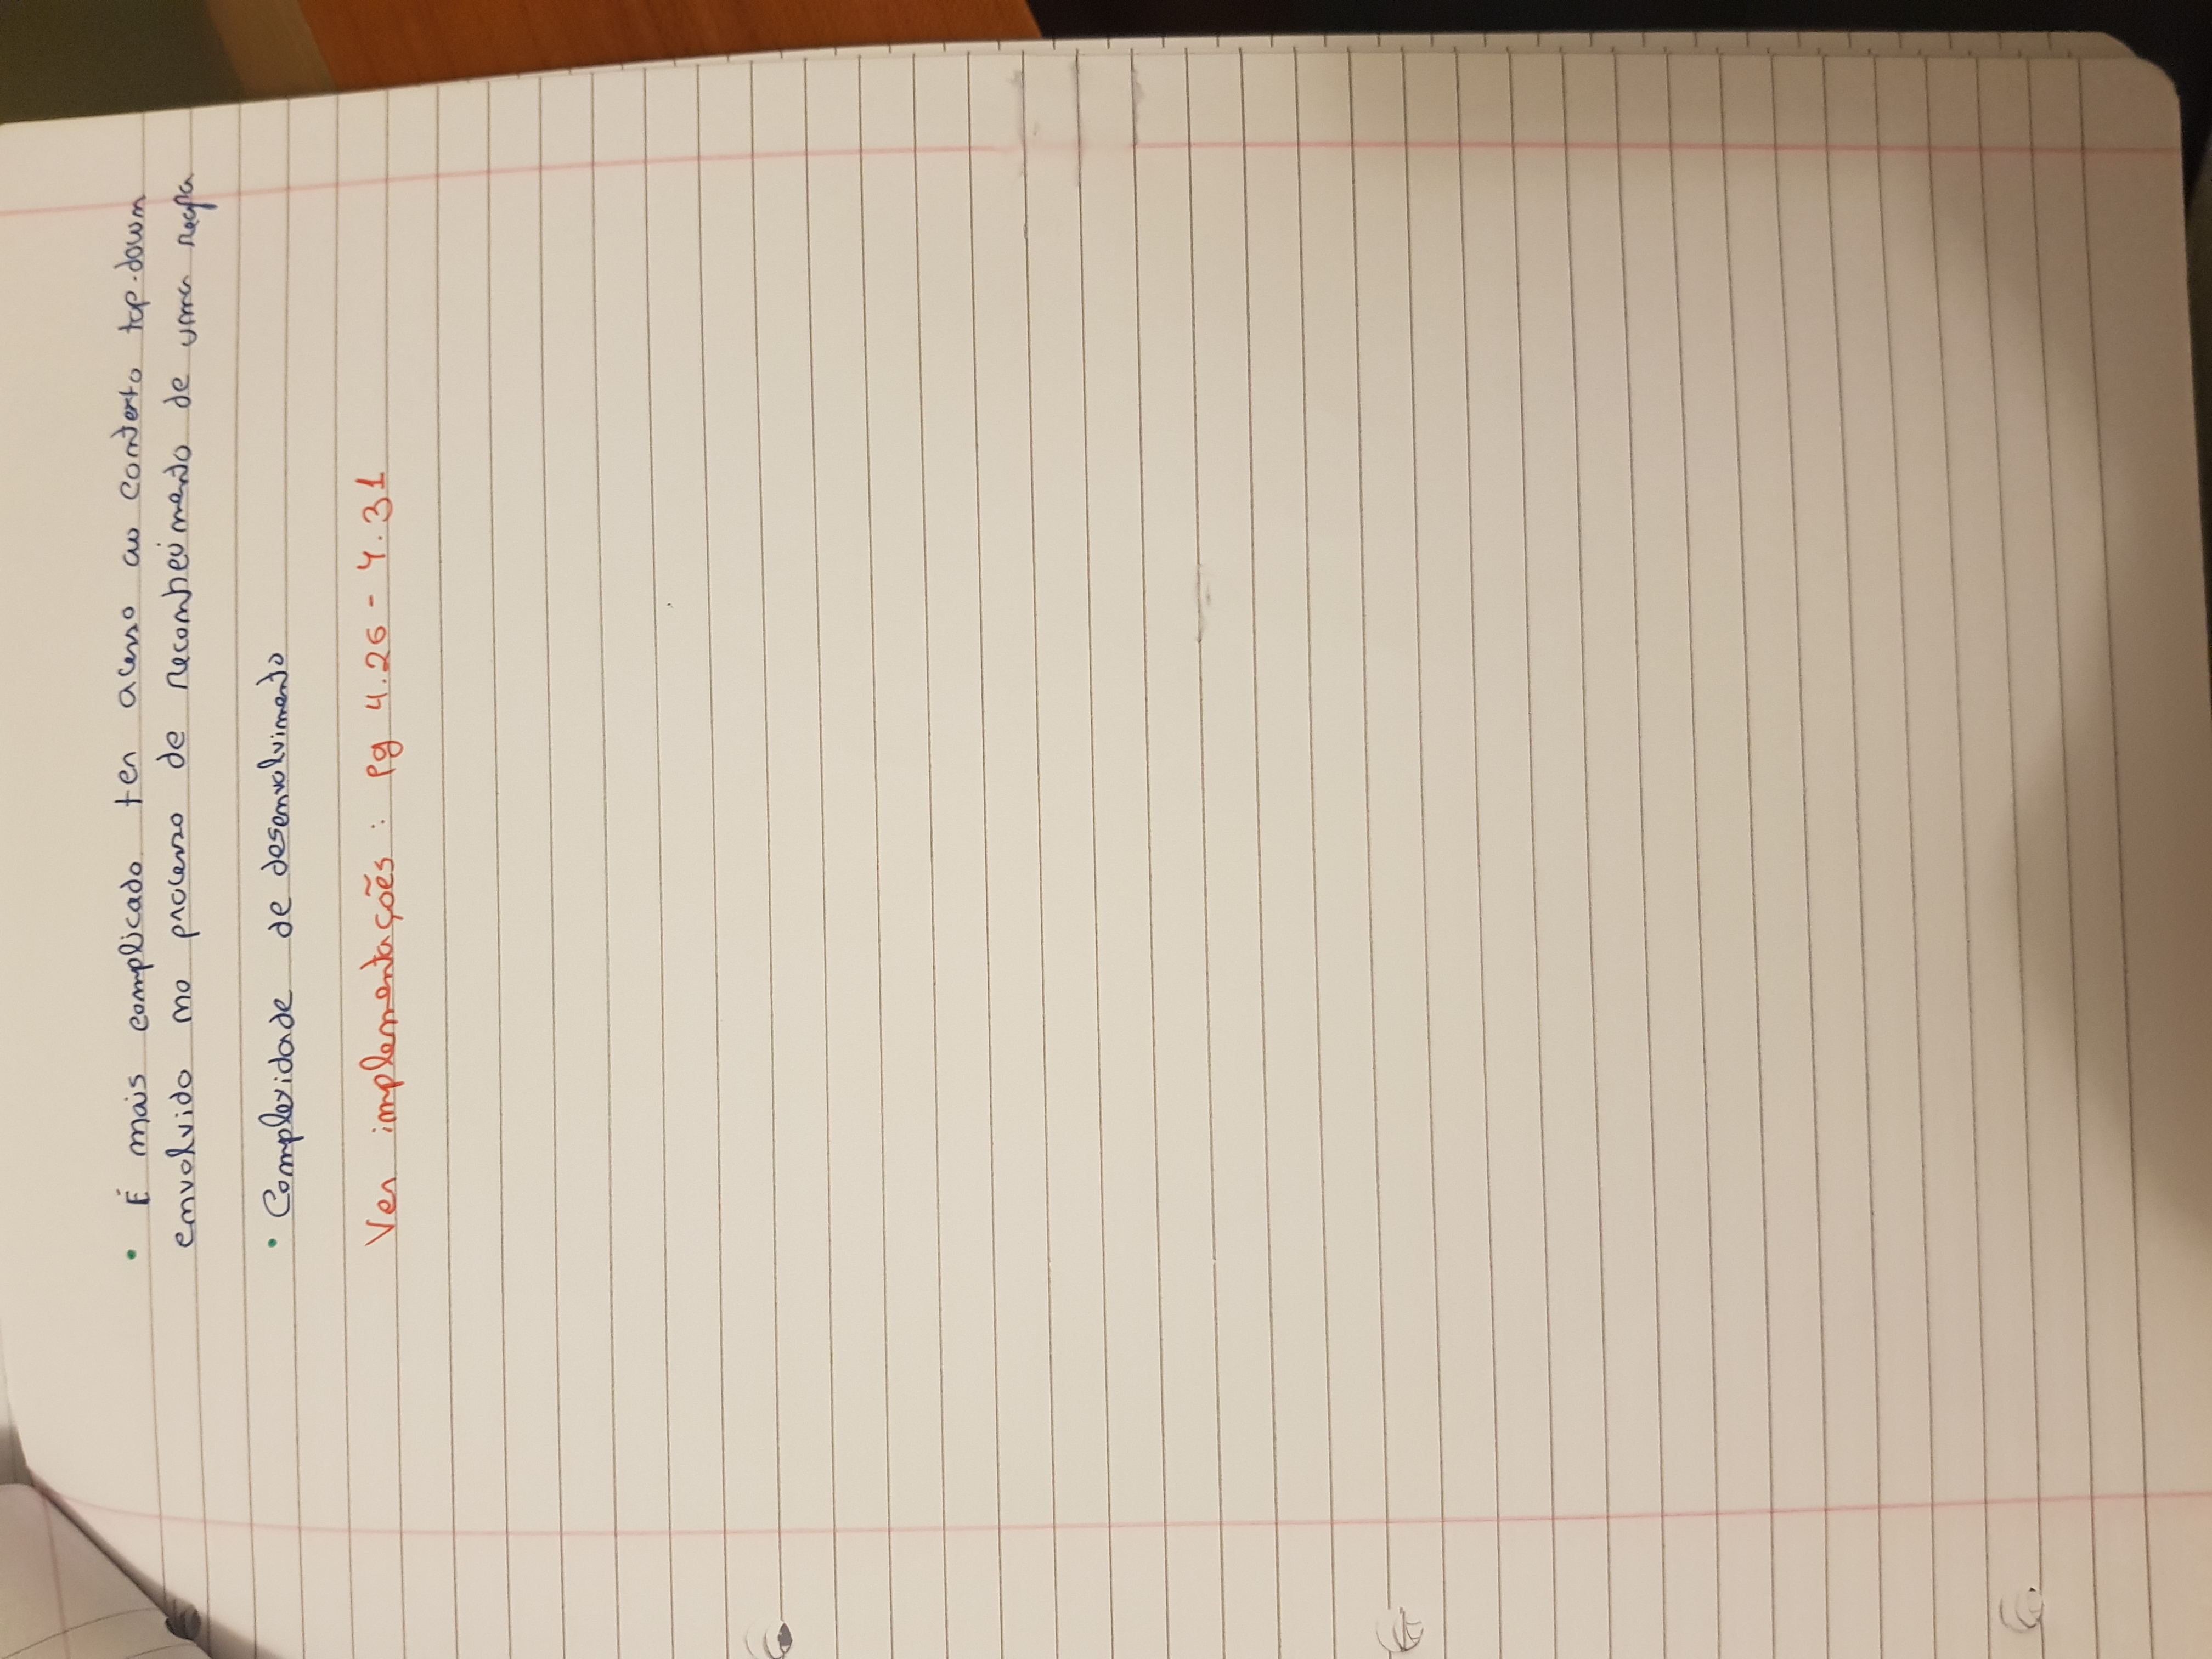 • É mais complicado ter acesso ao contexto top-down
envolvido no processo de reconhecimento de uma
• Complexidade de desenvolvimento
Ver implementações : pg 4.26 - 4.31